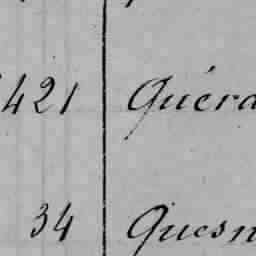 421 Quéra
34 Quesn